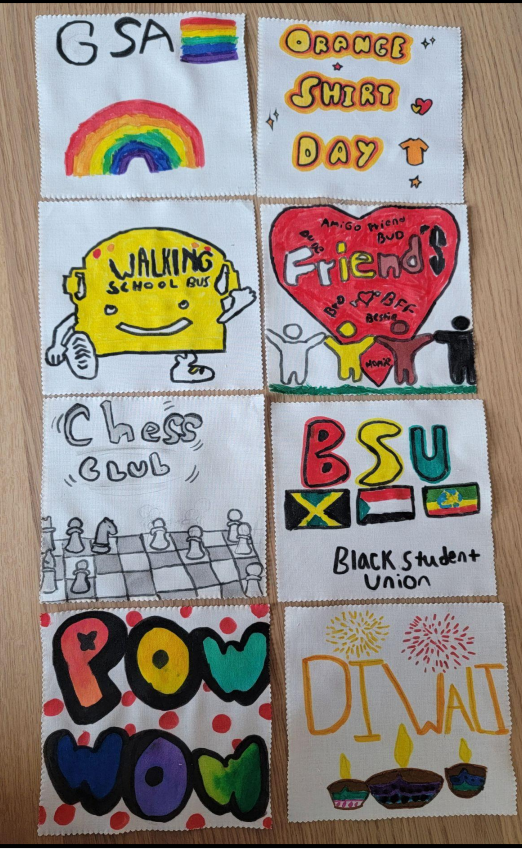 GSA
ORANGE
SHIRT
DAY
WALKING
SCHOOL BUS
AMiGO Friend
BUD
Friend's
BrO BFF
Bestie
Homie
Chess
CLUB
BSU
BLACK Student
Union
POW
WOW
DIWALI